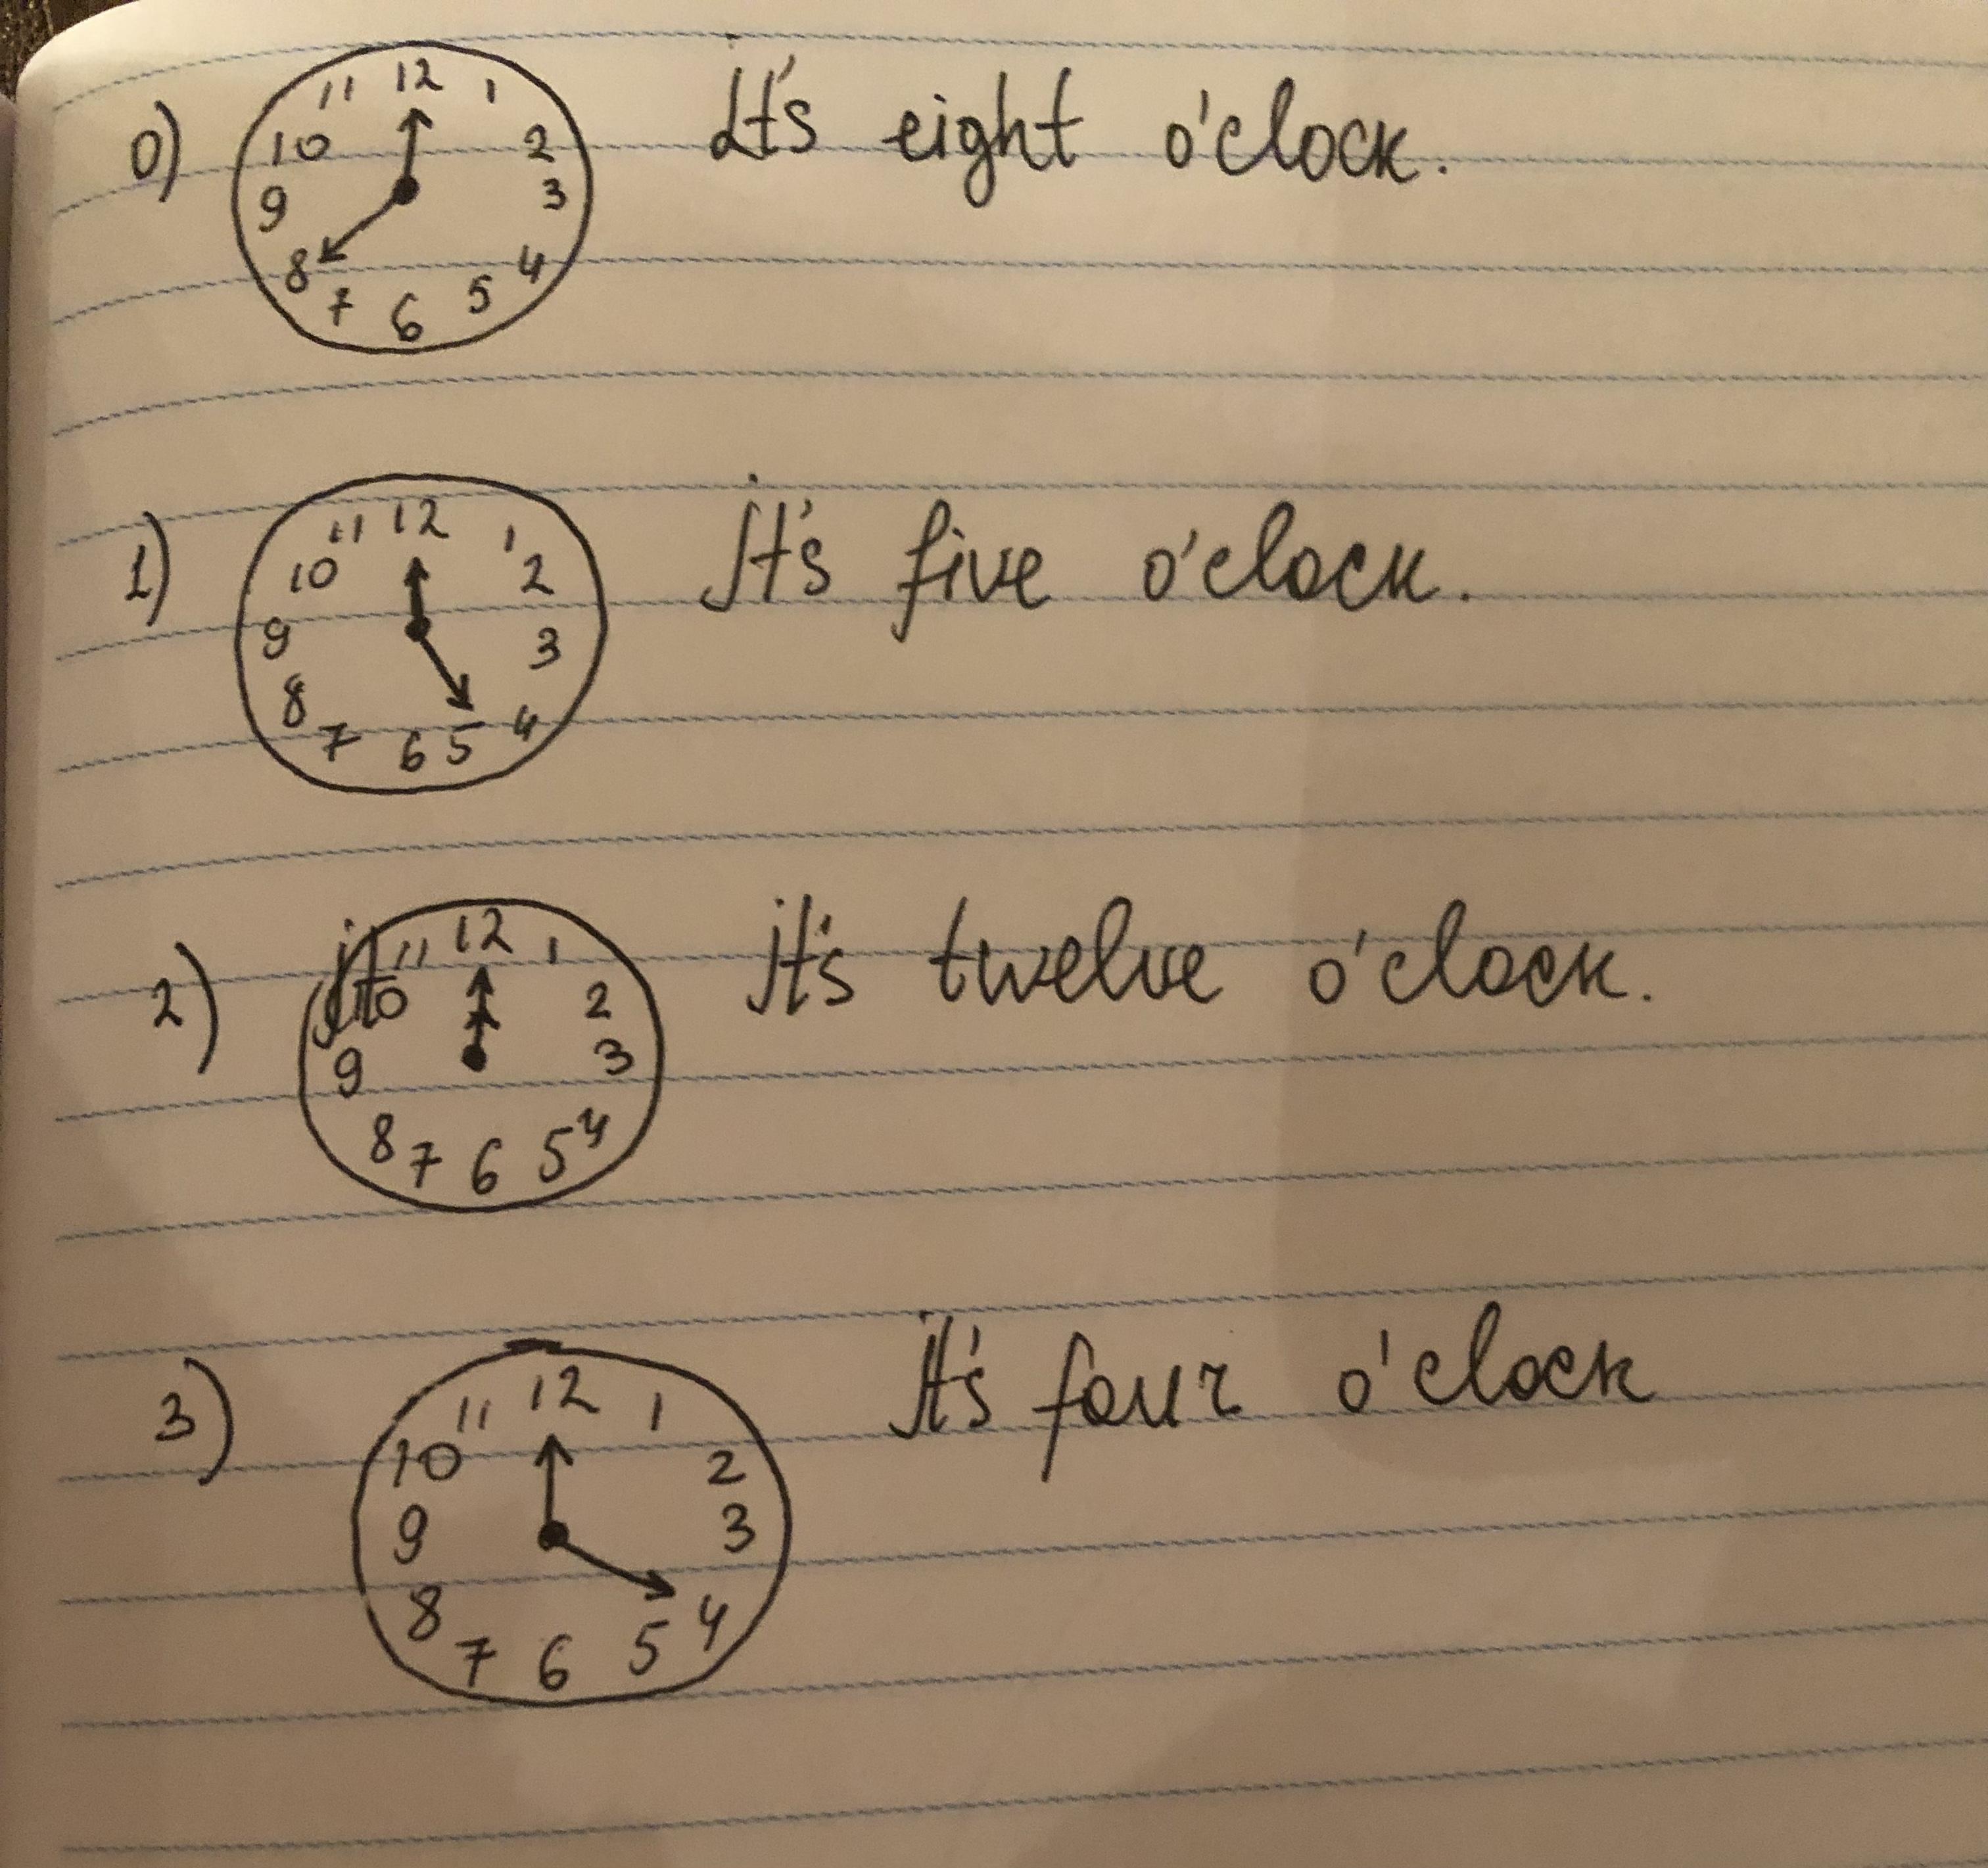 0) 11 12 1
10 2
9 3
8 4
7 6 5
It's eight o'clock.
1) 11 12 1
10 2
9 3
8 4
7 6 5
It's five o'clock.
2) 11 12 1
It 2
9 3
8 7 6 5 4
It's twelve o'clock.
3) 11 12 1
10 2
9 3
8 4
7 6 5
It's four o'clock